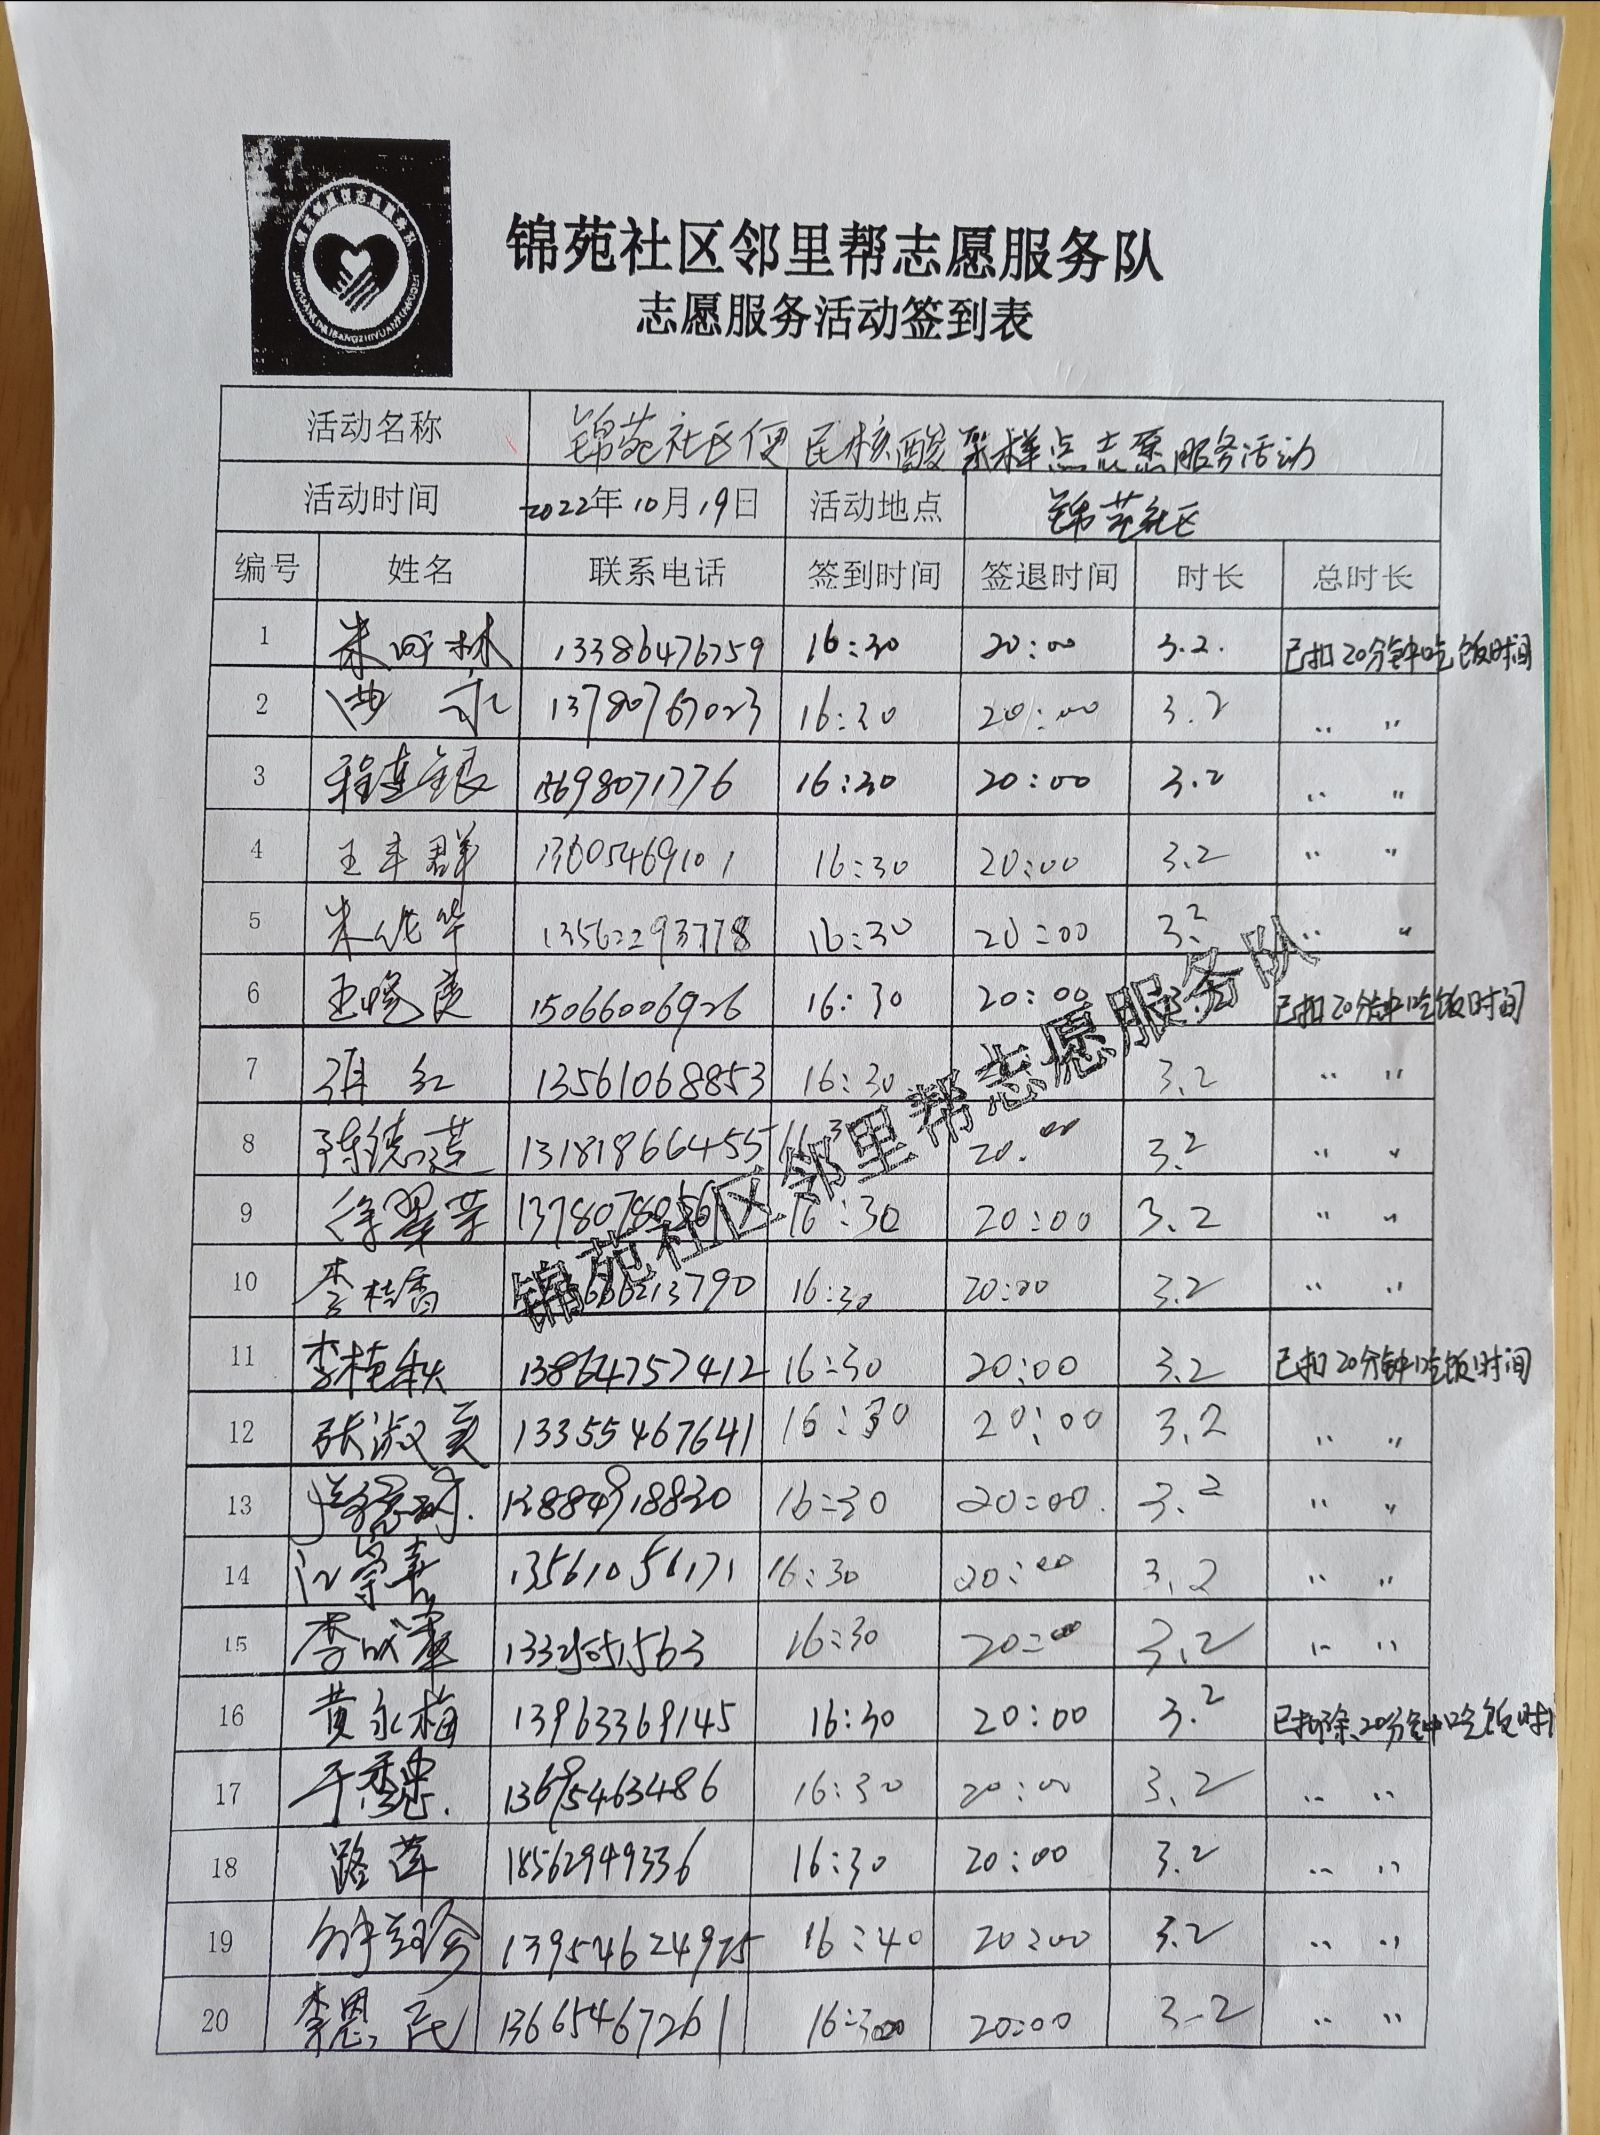 锦苑社区邻里帮志愿服务队
志愿服务活动签到表
活动名称 锦苑社区便民核酸采样点志愿服务活动
活动时间 2022年10月19日 活动地点 锦苑社区
编号 姓名 联系电话 签到时间 签退时间 时长 总时长
1 林 13386476759 16:30 20:00 3.2. 已扣20分钟吃饭时间
2 永 13780767023 16:30 20:00 3.2 〃 〃
3 程连银 15698071776 16:30 20:00 3.2 〃 〃
4 王丰群 13605469101 16:30 20:00 3.2 〃 〃
5 华 13562293778 16:30 20:00 3.2 〃 〃
6 王晓良 15066006926 16:30 20:00 已扣20分钟吃饭时间
7 红 13561068853 16:30 3.2 〃 〃
8 陈德莲 131818664455 20:00 3.2 〃 〃
9 徐翠荣 16:30 20:00 3.2 〃 〃
10 李桂香 16:30 20:00 3.2 〃 〃
11 李梅秋 13864757412 16:30 20:00 3.2 已扣20分钟吃饭时间
12 张淑 13355467641 16:30 20:00 3.2 〃 〃
13 13884918830 16:30 20:00 3.2 〃 〃
14 江崇喜 13561056171 16:30 20:00 3.2 〃 〃
15 李成 16:30 20:00 3.2 〃 〃
16 黄永梅 13963369145 16:30 20:00 3.2 已扣除20分钟吃饭时
17 于 13695463486 16:30 20:00 3.2 〃 〃
18 路莲 18562949336 16:30 20:00 3.2 〃 〃
19 13954624925 16:40 20:00 3.2 〃 〃
20 李恩民 13665467261 16:30 20:00 3.2 〃 〃
锦苑社区邻里帮志愿服务队